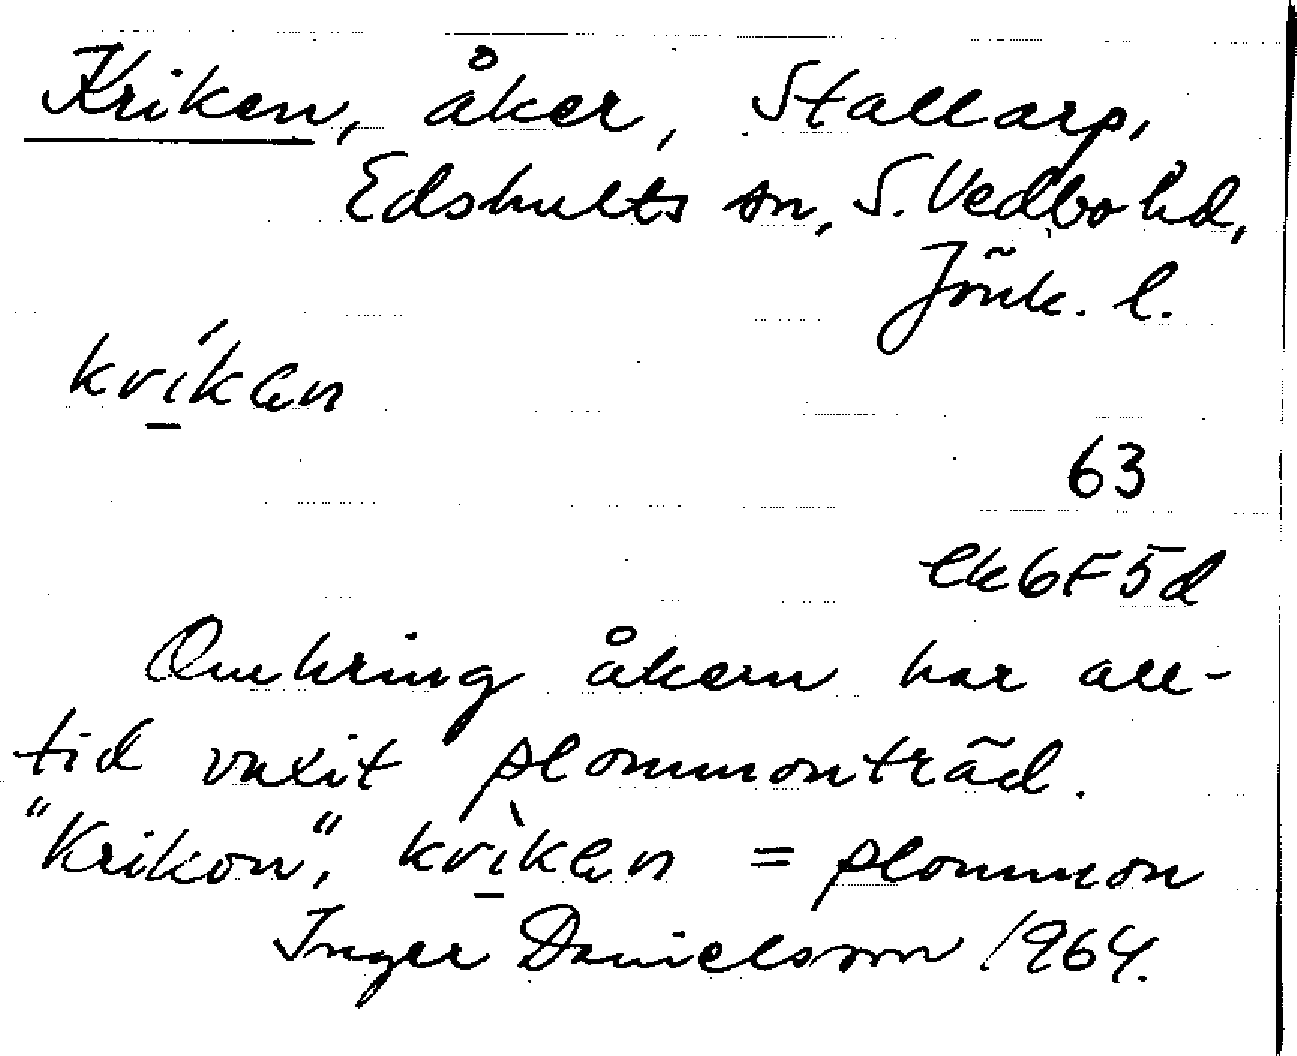 Kriken, åker, Stallarp,
Edshults sn, S. Vedbo hd,
Jönk. l.
kríkən
63
ek 6F5d
Omkring åkern har all-
tid växit plommonträd.
"Krikon", krìkən = plommon
Inger Danielsson 1964.